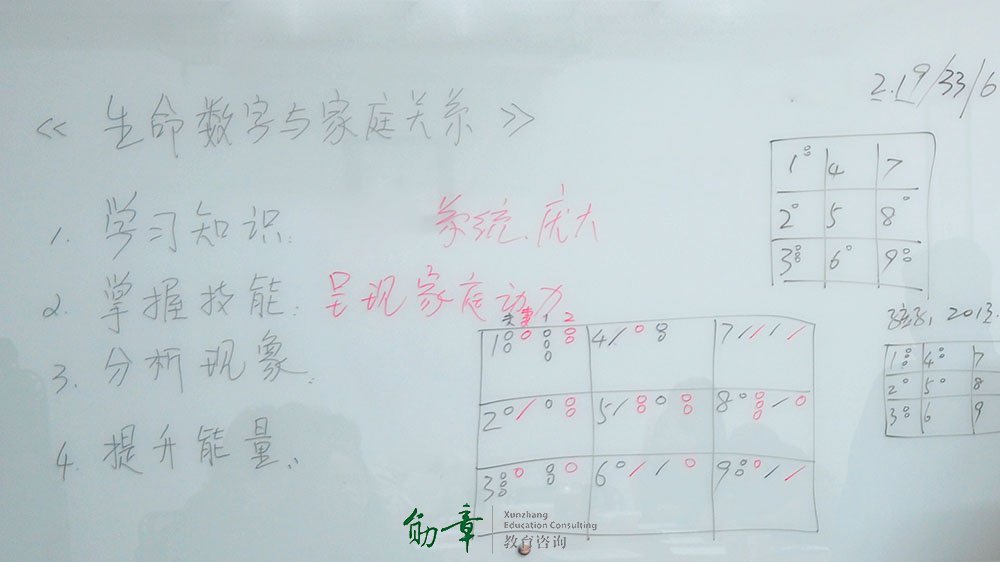 《生命数字与家庭关系》
2.19/33/6
1 4 7
2 5 8
3 6 9
1. 学习知识: 系统、庞大
2. 掌握技能: 呈现家庭动力
3. 分析现象.
4. 提升能量.
1 2
1 4 7
2 5 8
3 6 9
孩子, 2013.
1 4 7
2 5 8
3 6 9
勋章
Xunzhang
Education Consulting
教育咨询